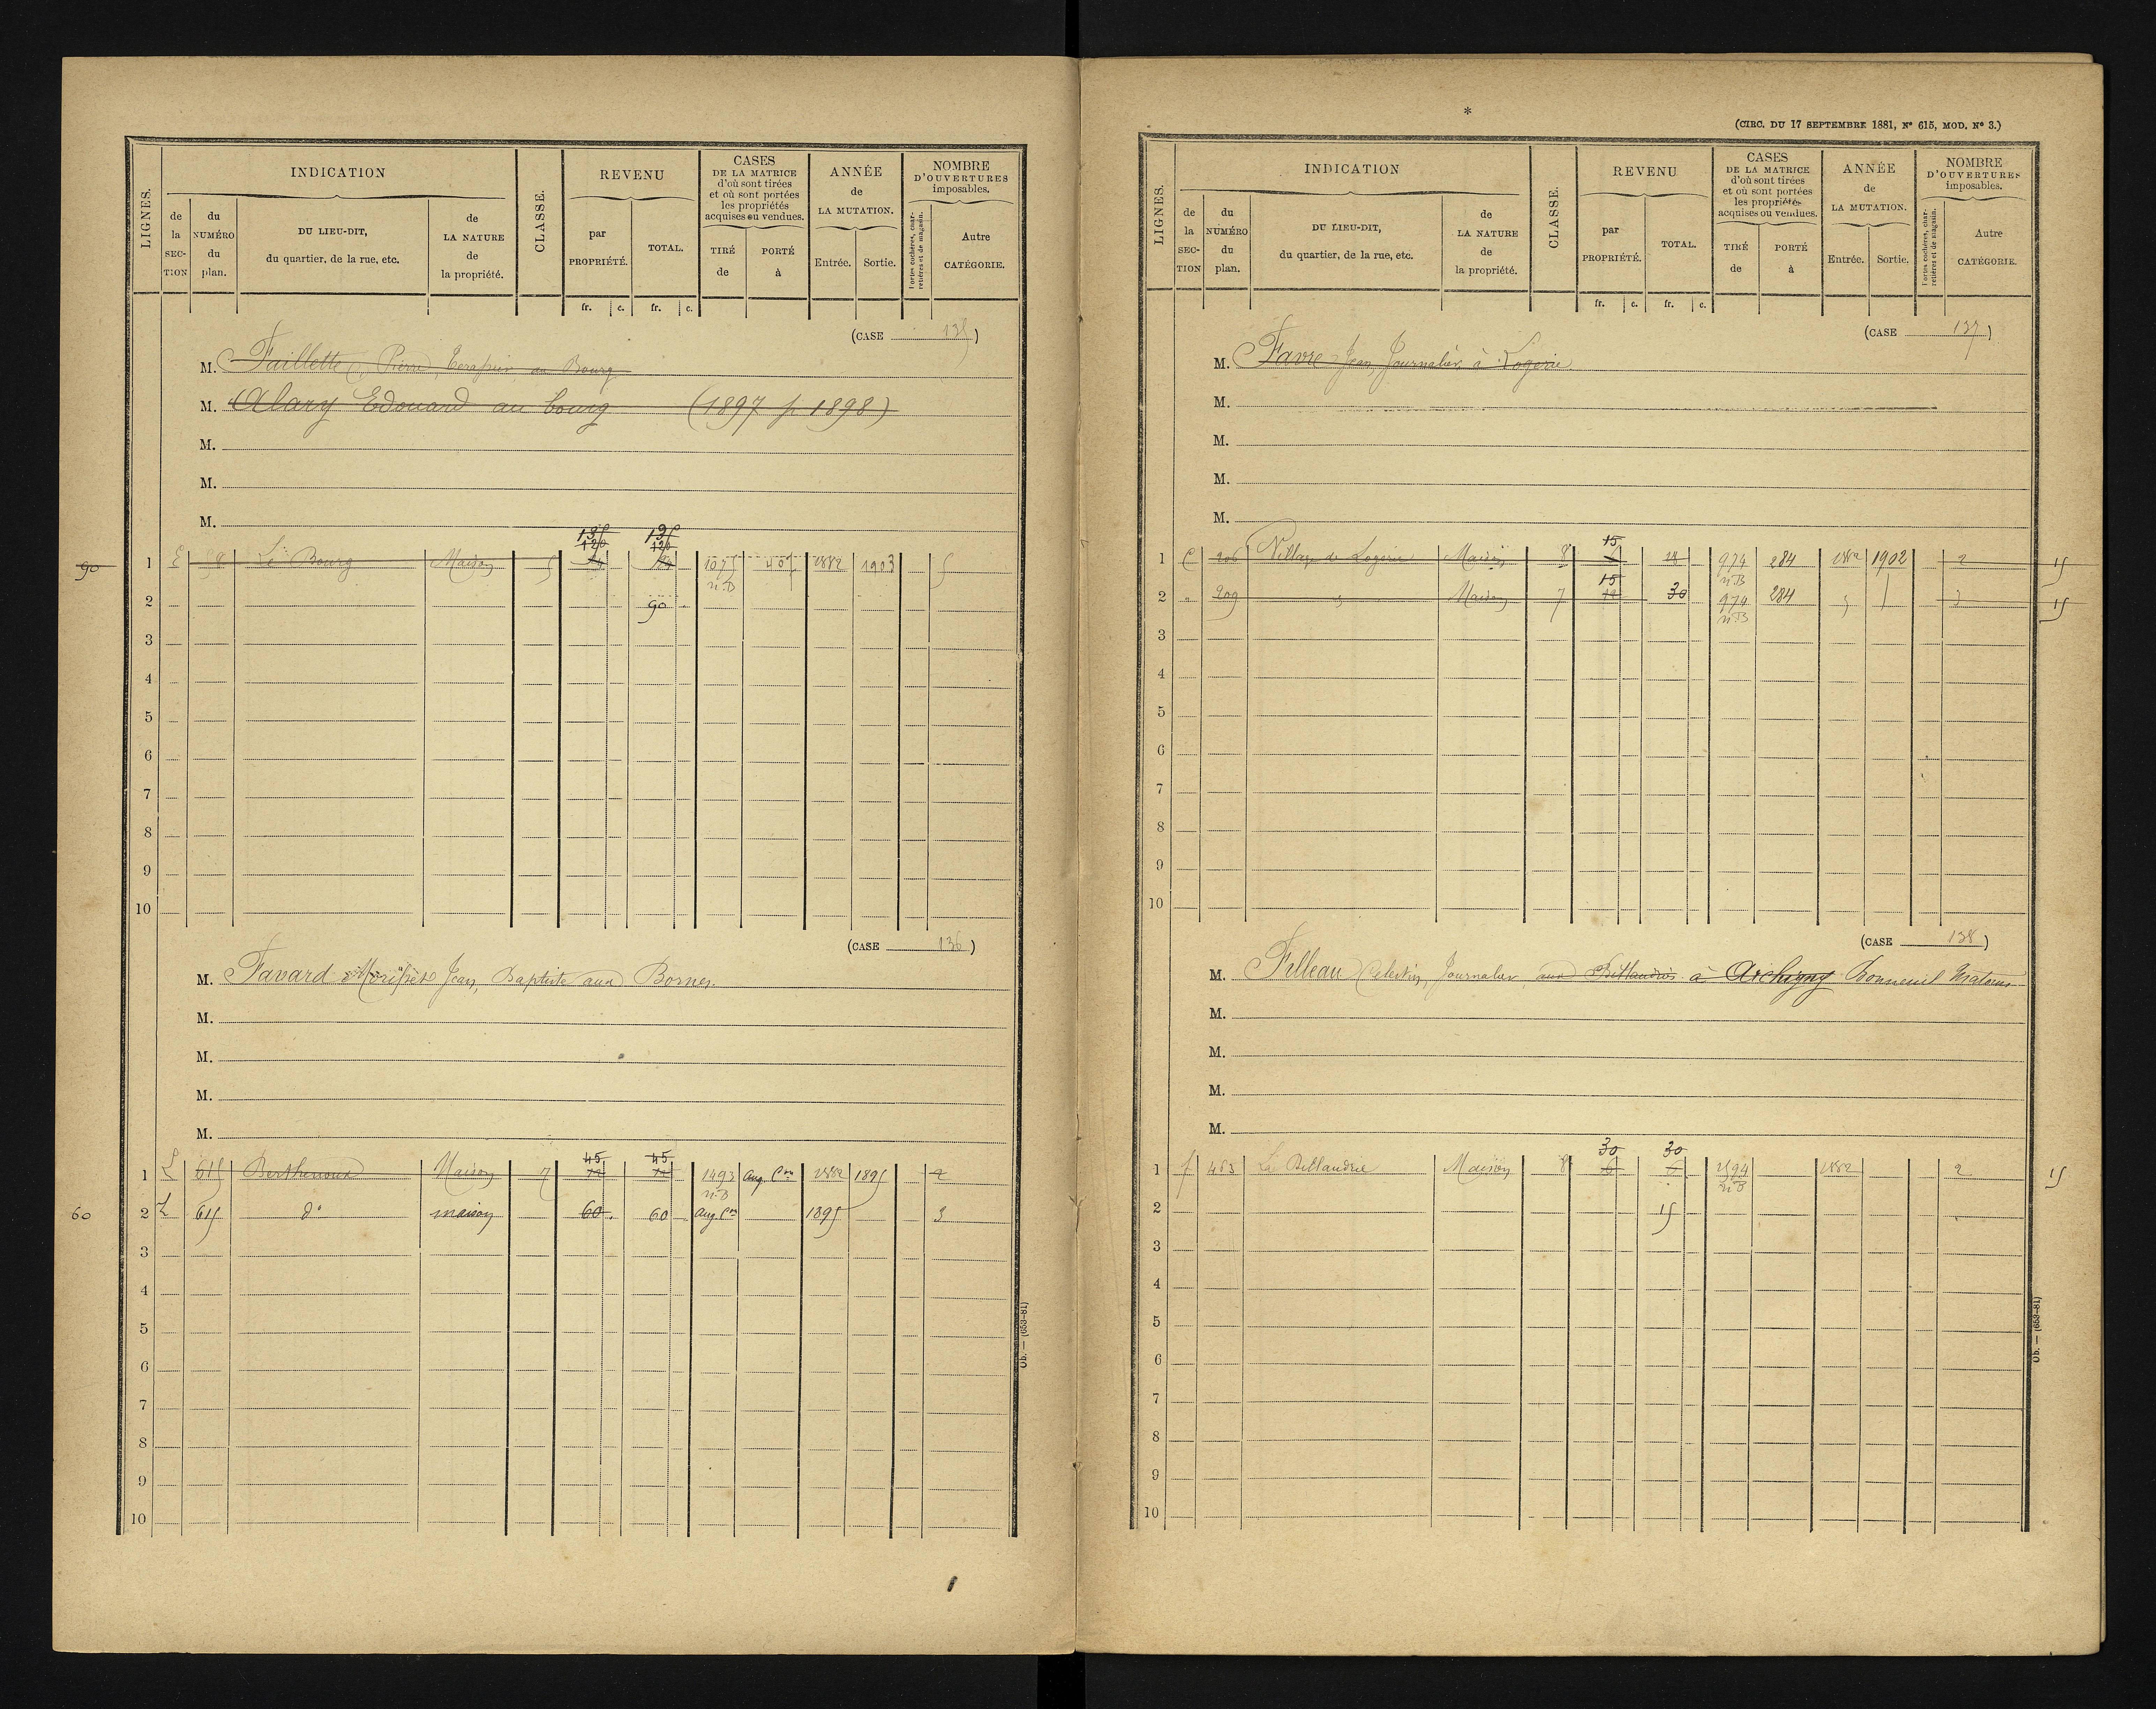 INDICATION
REVENU
CASES
DE LA MATRICE
d'où sont tirées
et où sont portées
les propriétés
acquises ou vendues.
ANNÉE
de
LA MUTATION.
NOMBRE
D'OUVERTURES
imposables.
LIGNES.
de la SECTION
du NUMÉRO du plan.
DU LIEU-DIT,
du quartier, de la rue, etc.
de LA NATURE de la propriété.
CLASSE.
par PROPRIÉTÉ.
TOTAL.
TIRÉ de
PORTÉ à
Entrée.
Sortie.
Portes cochères, charretières et de magasin.
Autre CATÉGORIE.
fr. c. fr. c.
(CASE 135)
M. Faillette Pierre, au Bourg
M. Alary Edouard au bourg (1897 p 1898)
M.
M.
M.
135 135
120 120
90 1 E 58 Le Bourg Maison 5 1075 1882 1903 5
n.B
2 90
3
4
5
6
7
8
9
10
(CASE 136)
M. Favard Jean, Baptiste aux Bornes.
M.
M.
M.
M.
45 45
1 L 615 Berthenoux Maison 7 12 12 1493 Aug. Con 1882 1895 2
n.B
60 2 L 615 do maison 60 60 Aug. Con 1895 3
3
4
5
6
7
8
9
10
Ob. — (653-81)
*
(CIRC. DU 17 SEPTEMBRE 1881, No 615, MOD. No 3.)
INDICATION
REVENU
CASES
DE LA MATRICE
d'où sont tirées
et où sont portées
les propriétés
acquises ou vendues.
ANNÉE
de
LA MUTATION.
NOMBRE
D'OUVERTURES
imposables.
LIGNES.
de la SECTION
du NUMÉRO du plan.
DU LIEU-DIT,
du quartier, de la rue, etc.
de LA NATURE de la propriété.
CLASSE.
par PROPRIÉTÉ.
TOTAL.
TIRÉ de
PORTÉ à
Entrée.
Sortie.
Portes cochères, charretières et de magasin.
Autre CATÉGORIE.
fr. c. fr. c.
(CASE 137)
M. Favre Jean, Journalier, à Logerie
M.
M.
M.
M.
15
1 C 206 Village de Logerie Maison 8 18 974 284 1882 1902 2 15
n.B
15
2 " 209 " Maison 7 12 30 974 284 " 3 15
n.B
3
4
5
6
7
8
9
10
(CASE 138)
M. Filleau Célestin, Journalier, aux Billaudries à Archigny Bonneuil Matours
M.
M.
M.
M.
30 30
1 f 463 La Billaudrie Maison 8 6 6 1594 1882 2 15
n.B
2 15
3
4
5
6
7
8
9
10
Ob. — (653-81)